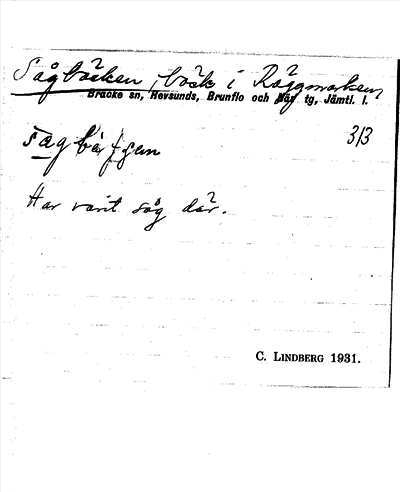 Sågbäcken, bäck i Räggmarken
Bräcke sn, Revsunds, Brunflo och Näs tg, Jämtl. l.
313
Har varit såg där.
C. LINDBERG 1931.